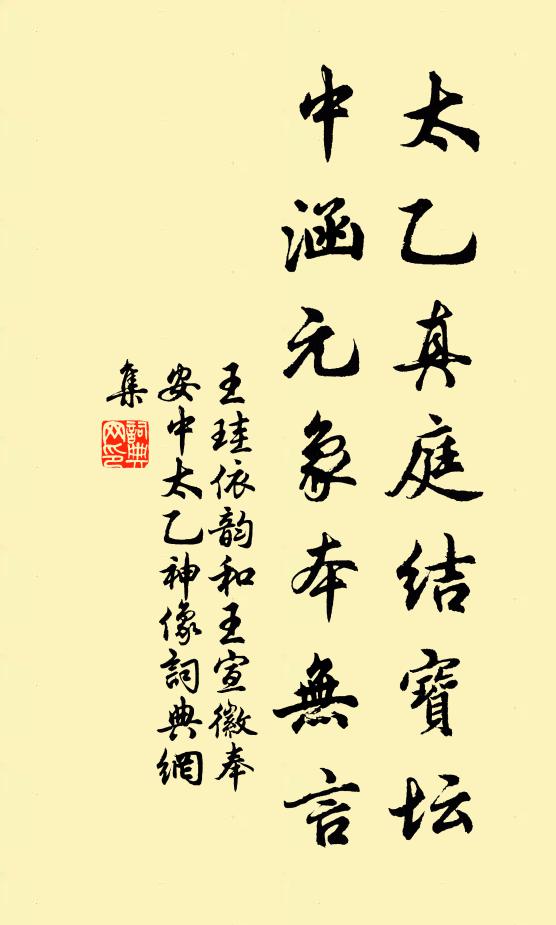 太乙真庭結寶坛
中涵元象本無言
王珪依韵和王宣徽奉
安中太乙神像詞典網
集
詞典
网印